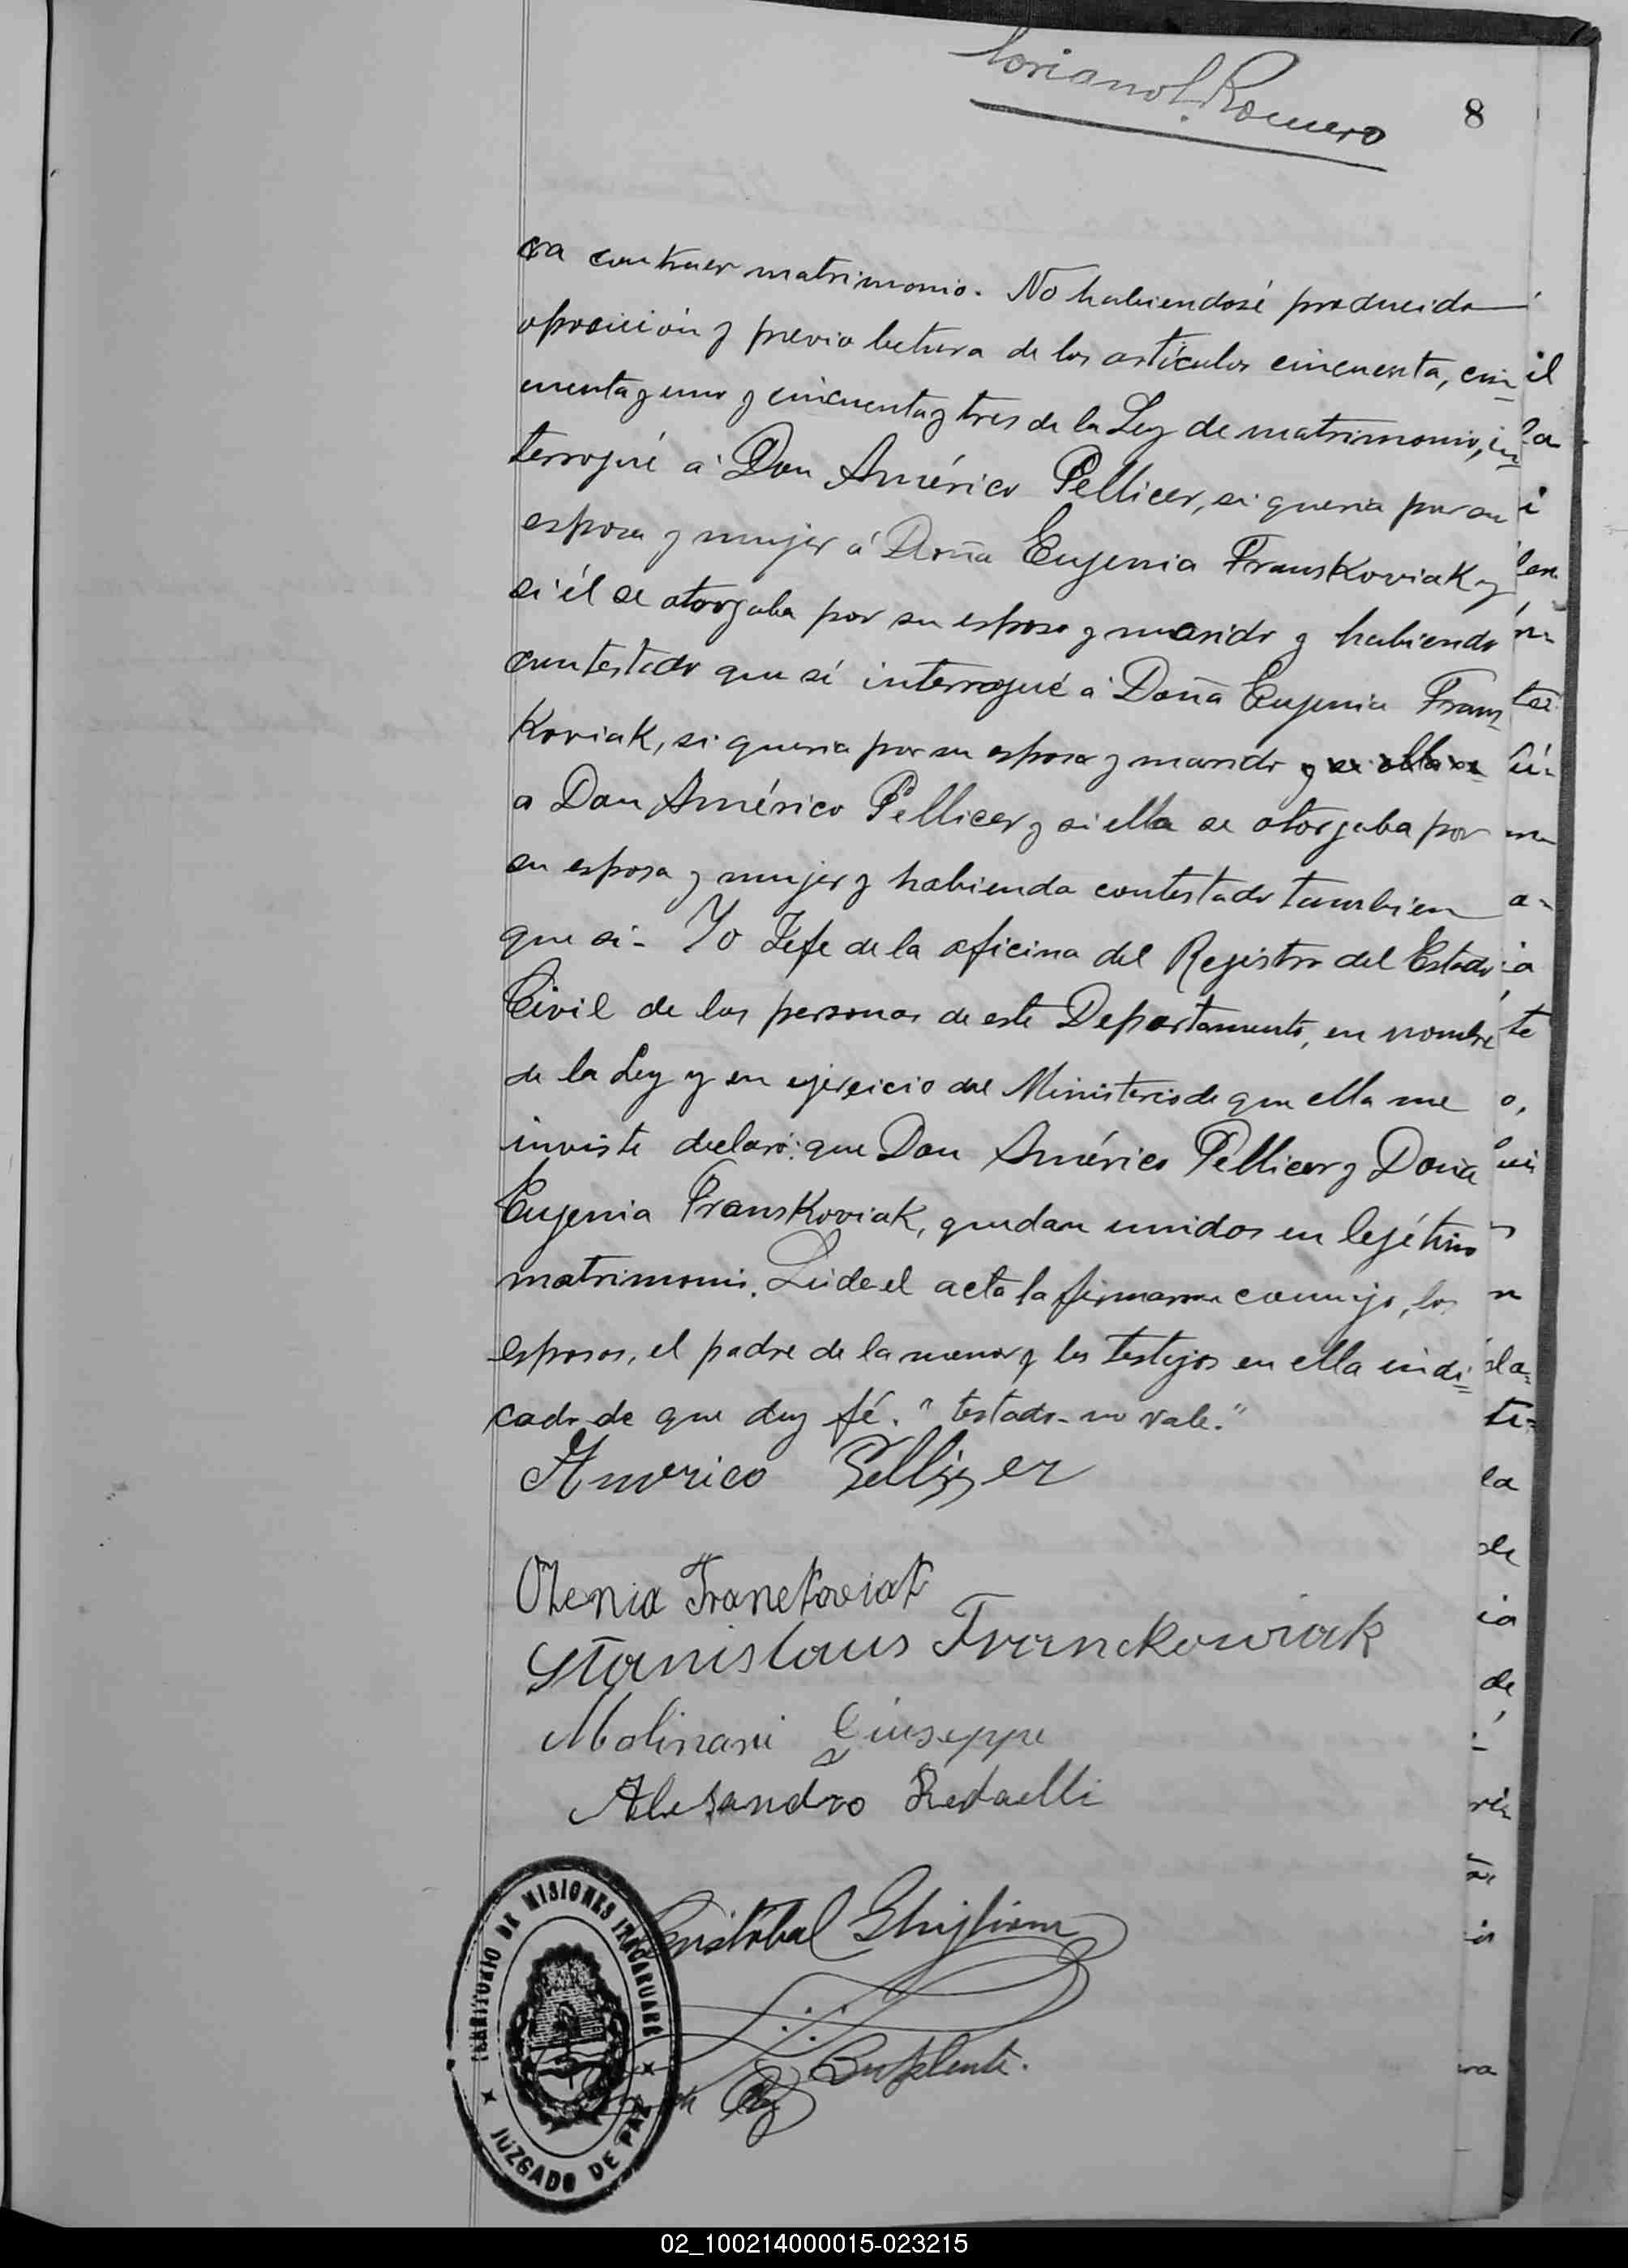 Loriano L. Romero
8
ra contraer matrimonio. No habiendosé producido
oposición y previa lectura de los artículos cincuenta, cin
cuenta y uno y cincuenta y tres de la Ley de matrimonio, in
terrogué á Don Américo Pellicer, si queria por su
esposa y mujer á Doña Eugenia FransKoviaK y
si él se otorgaba por su esposo y marido y habiendo
contestado que si interrogué á Doña Eugenia Frans
Koviak, si queria por su esposo y marido y si ella se
a Don Américo Pellicer y si ella se otorgaba por
su esposa y mujer y habiendo contestado tambien
que si- Yo Jefe de la oficina del Registro del Estado
Civil de las personas de este Departamento, en nombre
de la Ley y en ejercicio del Ministerio de que ella me
inviste declaro: que Don Américo Pellicer y Doña
Eugenia FransKoviak, quedan unidos en lejétimo
matrimonio. Leida el acta la firmaron conmigo, los
esposos, el padre de la menor y los testigos en ella indi=
cado de que doy fé. "testado-no vale."
Americo Pellizzer
Olenia Franckoviak
Stanislaus Franckowiak
Molinari Giuseppe
Alesandro Redaelli
Cristóbal Ghiglione
Suplente.
TERRITORIO DE MISIONES ITACARUARE
JUZGADO DE PAZ
il
la
i
te
o,
n
la
de
ia
de,
ra
02_100214000015-023215